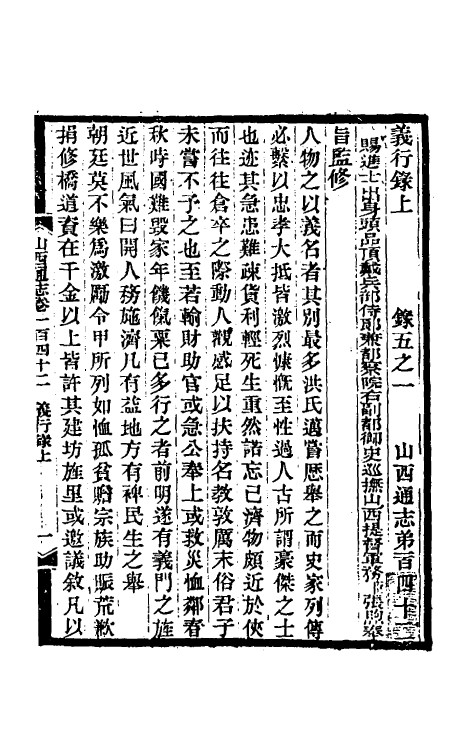 義行錄上 錄五之一 山西通志弟百四十二
賜進士出身頭品頂戴兵部侍郎兼都察院右副都御史巡撫山西提督軍務 張煦奉
旨監修
人物之以義名者其別最多洪氏邁嘗歷舉之而史家列傳
必繫以忠孝大抵皆激烈慷慨至性過人古所謂豪傑之士
也迹其急患難疎貨利輕死生重然諾忘己濟物頗近於俠
而往往倉卒之際動人觀感足以扶持名教敦厲末俗君子
未嘗不予之也至若輸財助官或急公奉上或救災恤鄰春
秋時國難毀家年饑餼粟已多行之者前明遂有義門之旌
近世風氣日開人務施濟凡有益地方有裨民生之舉
朝廷莫不樂為激勵令甲所列如恤孤貧贍宗族助賑荒歉
捐修橋道資在千金以上皆許其建坊旌里或邀議敘凡以
山西通志卷一百四十二 義行錄上 一